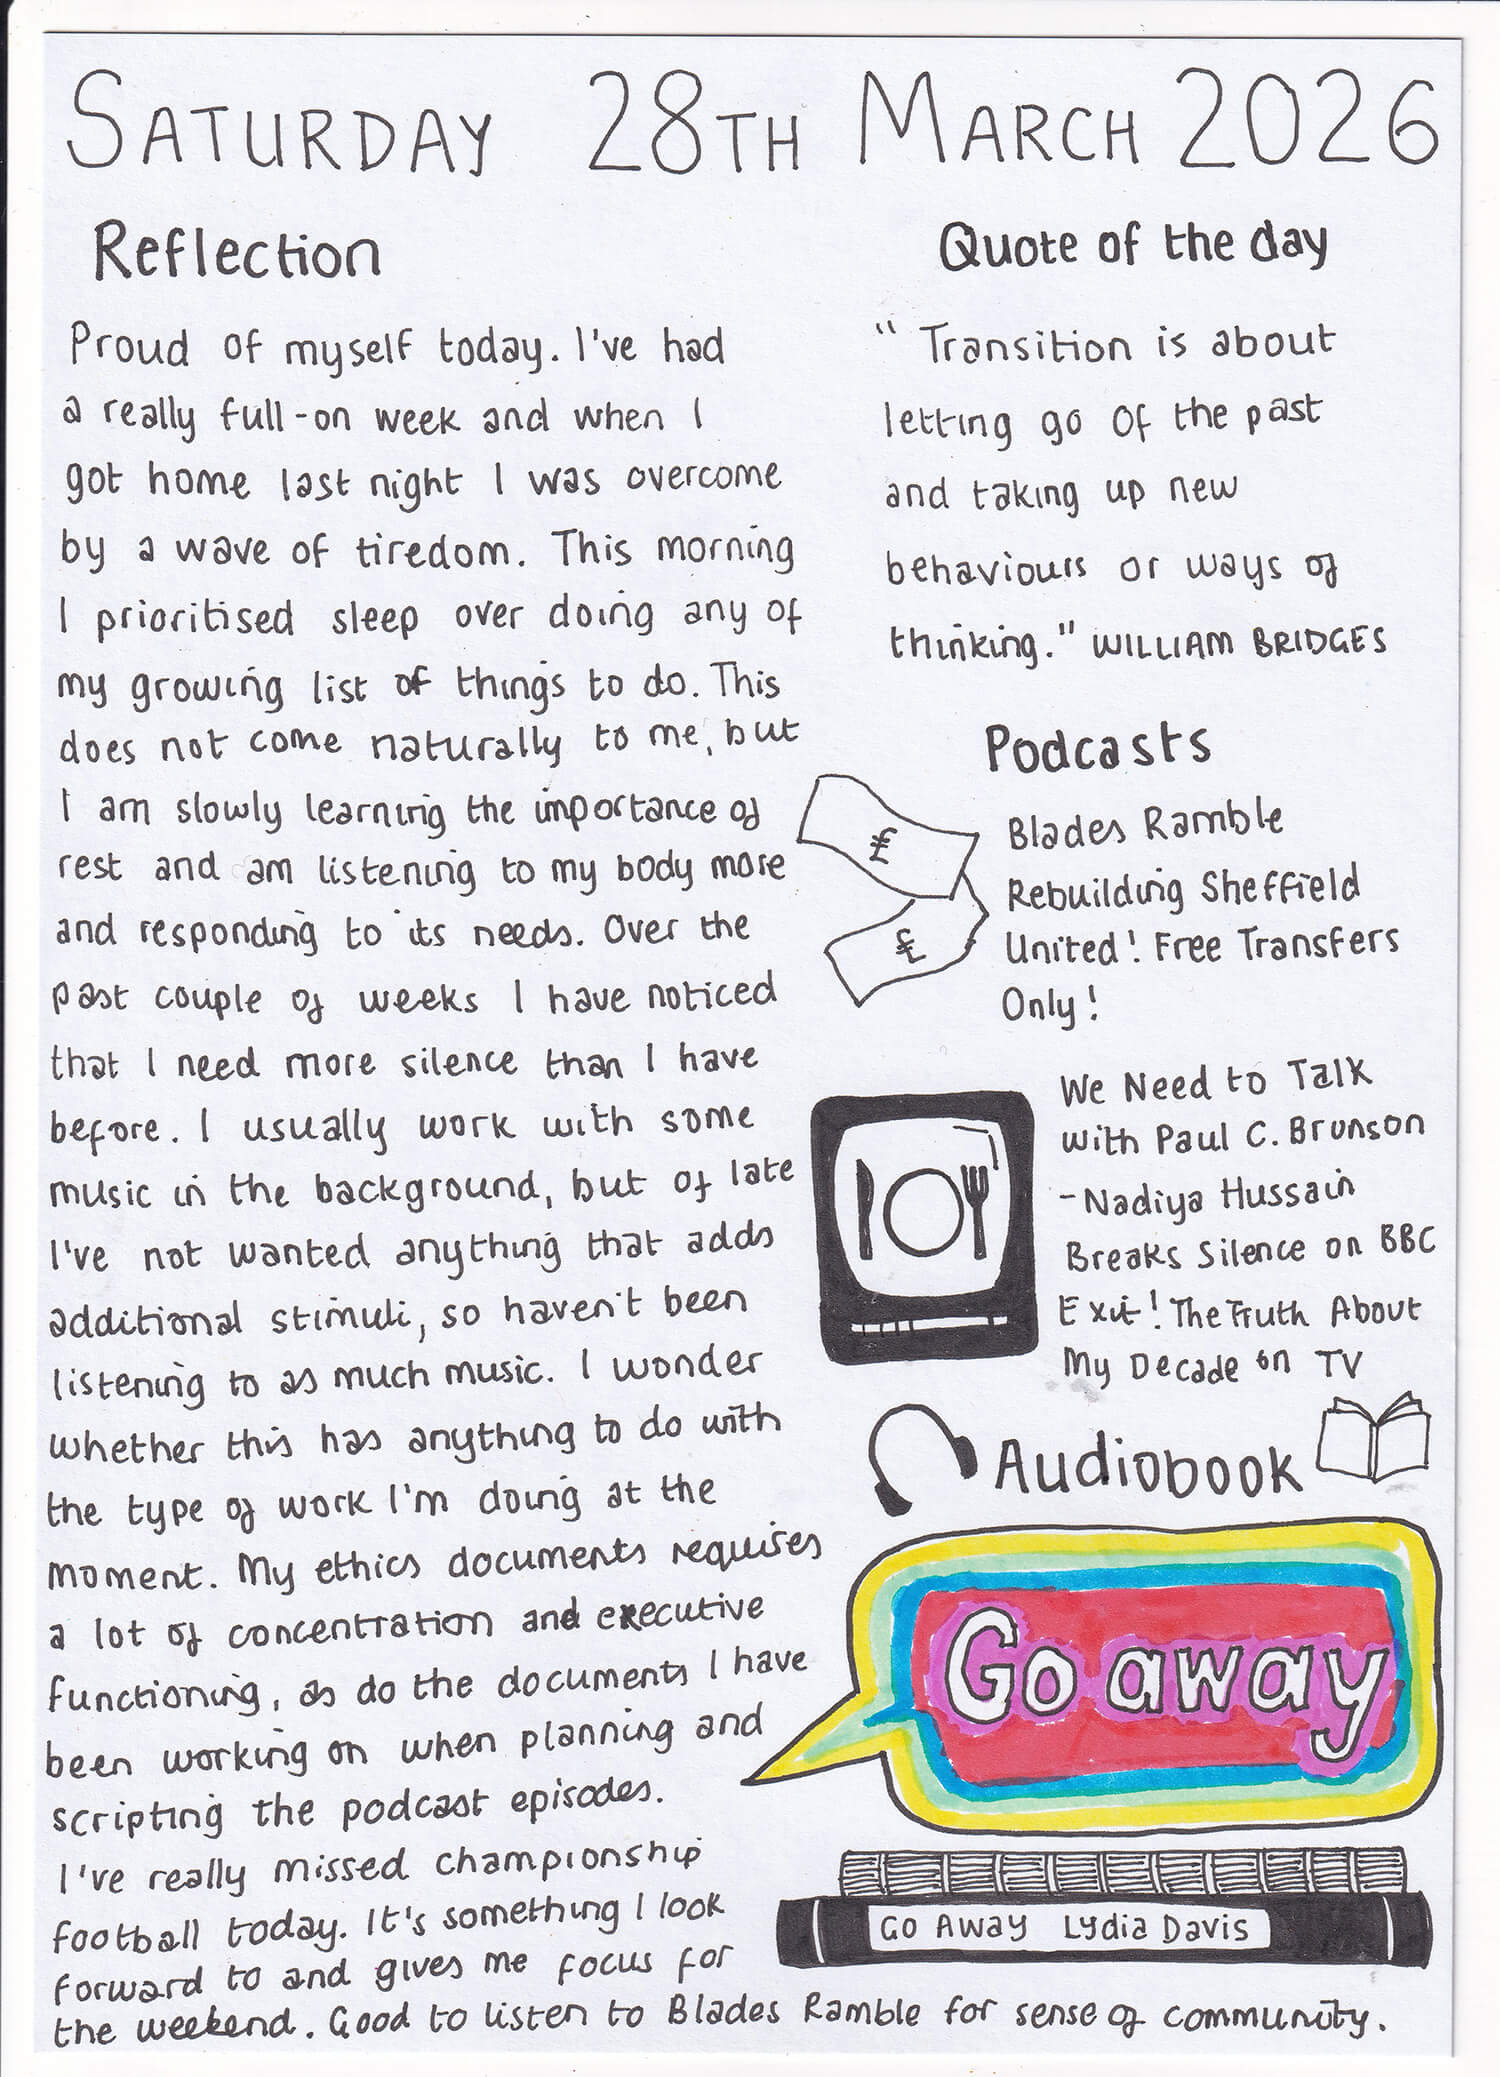 SATURDAY 28TH MARCH 2026
Reflection
Proud of myself today. I've had
a really full-on week and when I
got home last night I was overcome
by a wave of tiredom. This morning
I prioritised sleep over doing any of
my growing list of things to do. This
does not come naturally to me, but
I am slowly learning the importance of
rest and am listening to my body more
and responding to its needs. Over the
past couple of weeks I have noticed
that I need more silence than I have
before. I usually work with some
music in the background, but of late
I've not wanted anything that adds
additional stimuli, so haven't been
listening to as much music. I wonder
whether this has anything to do with
the type of work I'm doing at the
moment. My ethics documents requires
a lot of concentration and executive
functioning, as do the documents I have
been working on when planning and
scripting the podcast episodes.
I've really missed championship
football today. It's something I look
forward to and gives me focus for
the weekend. Good to listen to Blades Ramble for sense of community.
Quote of the day
"Transition is about
letting go of the past
and taking up new
behaviours or ways of
thinking." WILLIAM BRIDGES
Podcasts
£
£
Blades Ramble
Rebuilding Sheffield
United! Free Transfers
Only!
We Need to Talk
with Paul C. Brunson
- Nadiya Hussain
Breaks Silence on BBC
Exit! The Truth About
My Decade on TV
Audiobook
Go away
GO AWAY LYdia Davis